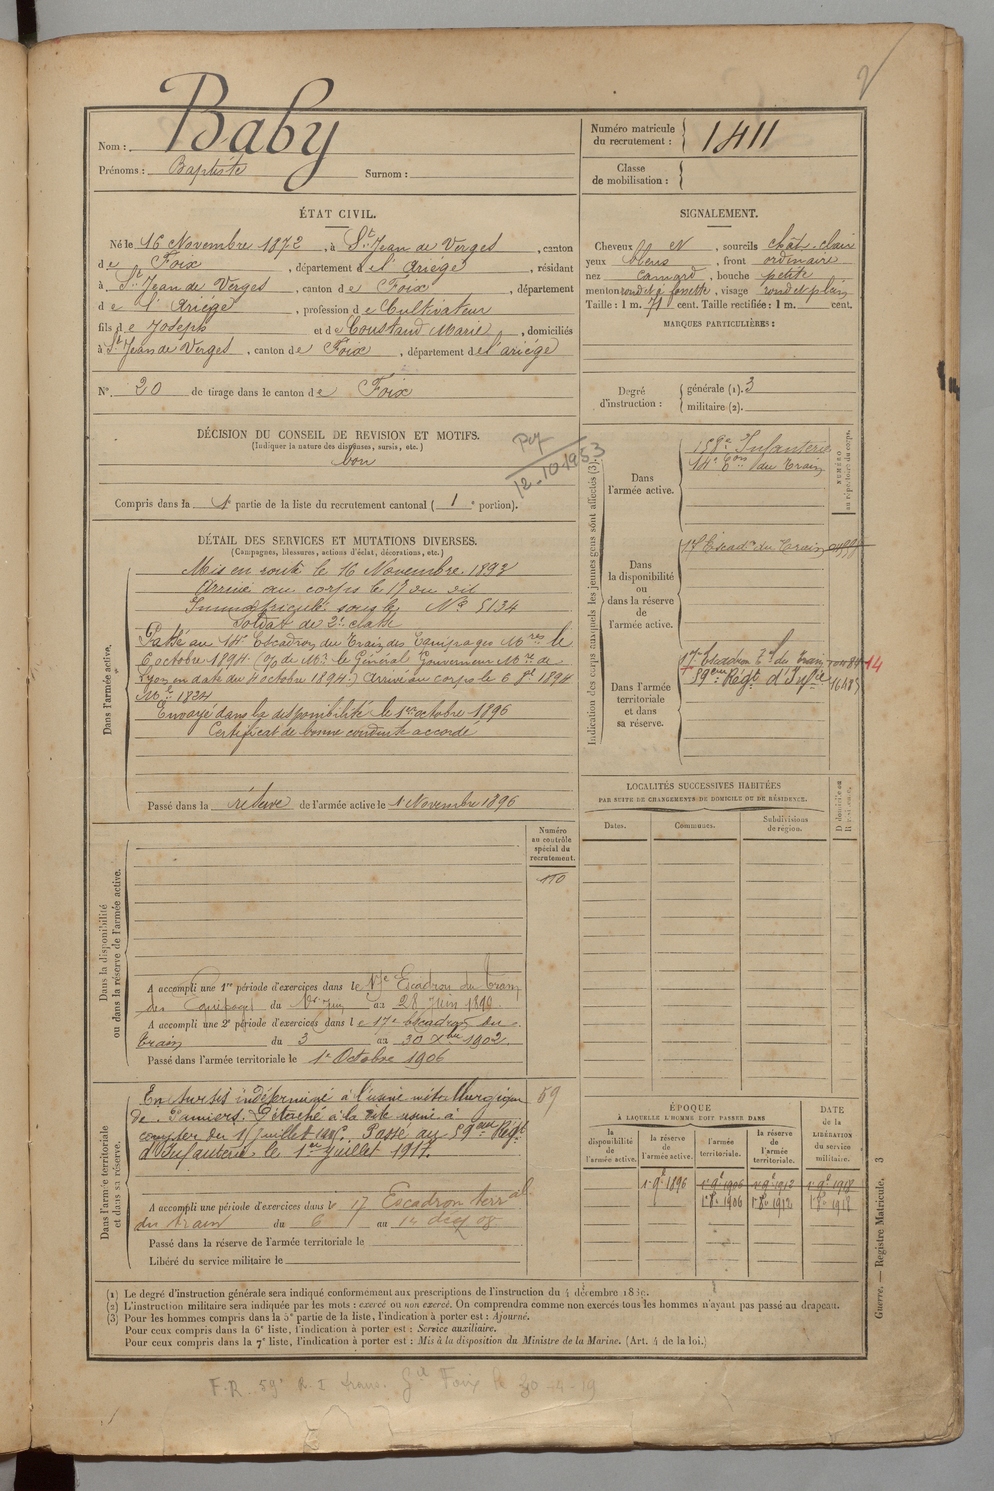 Nom : Baby
Prénoms : Baptiste Surnom :
Numéro matricule du recrutement : 1411
Classe de mobilisation :
ÉTAT CIVIL.
Né le 16 Novembre 1872, à St Jean de Verges, canton
de Foix, département de l'Ariège, résidant
à St Jean de Verges, canton de Foix, département
de l'Ariège, profession de Cultivateur
fils de Joseph et de Coustaud Marie, domiciliés
à St Jean de Verges, canton de Foix, département de l'ariège
N° 20 de tirage dans le canton de Foix
SIGNALEMENT.
Cheveux N, sourcils chât. clair
yeux bleus, front ordinaire
nez camard, bouche petite
menton rond et à fossette, visage rond et plein
Taille : 1 m. 71 cent. Taille rectifiée : 1 m. cent.
MARQUES PARTICULIÈRES :
Degré d'instruction : générale (1). 3
militaire (2).
DÉCISION DU CONSEIL DE REVISION ET MOTIFS.
(Indiquer la nature des dispenses, sursis, etc.)
bon
12-10-1953
Compris dans la 1e partie de la liste du recrutement cantonal ( 1e portion).
DÉTAIL DES SERVICES ET MUTATIONS DIVERSES.
(Campagnes, blessures, actions d'éclat, décorations, etc.)
Dans l'armée active.
Mis en route le 16 Novembre 1893
Arrivé au corps le 17 du dit
Immatriculé sous le N° 5134
Soldat de 2e classe
Passé au 14e Escadron du Train des Equipages Mres le
6 octobre 1894 (N. de Mr le Général Gouverneur Mre de
Lyon en date du 4 octobre 1894.) Arrivé au corps le 6 8bre 1894
Mle 1824
Envoyé dans la disponibilité le 1er octobre 1896
Certificat de bonne conduite accordé
Passé dans la réserve de l'armée active le 1 Novembre 1896
Indication des corps auxquels les jeunes gens sont affectés (3).
NUMÉRO au répertoire du corps.
Dans l'armée active.
158e Infanterie
14e Eon du Train
Dans la disponibilité ou dans la réserve de l'armée active.
17 Escadn du Train
Dans l'armée territoriale et dans sa réserve.
17 Escadron tl du Train
14
59eme Régt d'Infie
LOCALITÉS SUCCESSIVES HABITÉES
PAR SUITE DE CHANGEMENTS DE DOMICILE OU DE RÉSIDENCE.
Dates. Communes. Subdivisions de région. D domicile ou R résidence.
Dans la disponibilité ou dans la réserve de l'armée active.
Numéro au contrôle spécial du recrutement.
110
A accompli une 1re période d'exercices dans le 17e Escadron du train
des Equipages du 1er Juin au 28 Juin 1899
A accompli une 2e période d'exercices dans le 17e Escadron du
train du 3 au 30 Xbre 1902.
Passé dans l'armée territoriale le 1er Octobre 1906
Dans l'armée territoriale et dans sa réserve.
En sursis indéterminé à l'usine métallurgique
59
de Pamiers. Détaché à la dite usine à
compter du 1er Juillet 1917. Passé au 59eme Régt
d'Infanterie le 1er Juillet 1917.
A accompli une période d'exercices dans le 17 Escadron terral
du train du 6 au
Passé dans la réserve de l'armée territoriale le
Libéré du service militaire le
ÉPOQUE
À LAQUELLE L'HOMME DOIT PASSER DANS
la disponibilité de l'armée active.
la réserve de l'armée active.
l'armée territoriale.
la réserve de l'armée territoriale.
DATE de la LIBÉRATION du service militaire.
1 9e 1896 1 9e 1906 1 9e 1912 1 9e 1918
1 8e 1906 1 8e 1912 1 8e 1918
(1) Le degré d'instruction générale sera indiqué conformément aux prescriptions de l'instruction du 4 décembre 1889.
(2) L'instruction militaire sera indiquée par les mots : exercé ou non exercé. On comprendra comme non exercés tous les hommes n'ayant pas passé au drapeau.
(3) Pour les hommes compris dans la 5e partie de la liste, l'indication à porter est : Ajourné.
Pour ceux compris dans la 6e liste, l'indication à porter est : Service auxiliaire.
Pour ceux compris dans la 7e liste, l'indication à porter est : Mis à la disposition du Ministre de la Marine. (Art. 4 de la loi.)
Guerre. — Registre Matricule. 3
F.R. 59e R.I trans. Gd Foix le 30-4-19